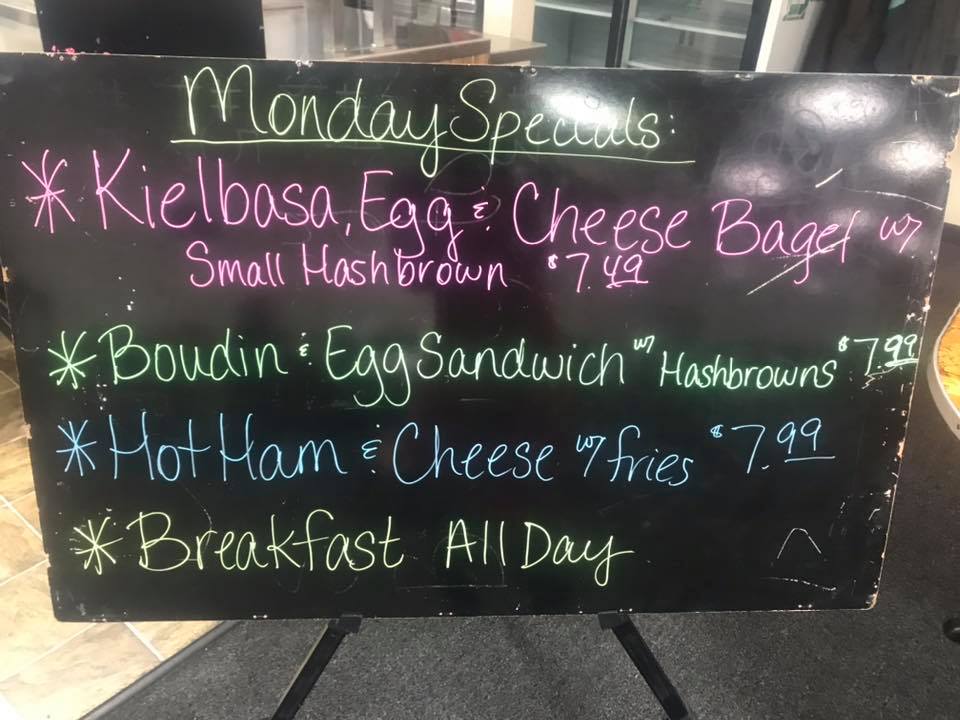 Monday Specials:
* Kielbasa, Egg & Cheese Bagel w/
Small Hashbrown $7.49
* Boudin & Egg Sandwich w/ Hashbrowns $7.99
* Hot Ham & Cheese w/ fries $7.99
* Breakfast All Day